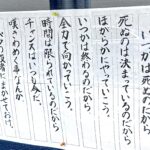 いつかは死ぬのだから
死ぬのは決まっているのだから
ほがらかにやっていこう。
いつかは終わるのだから
全力で向かっていこう。
時間は限られているのだから
チャンスはいつも今だ。
嘆きわめく事なんか
オペラの役者にまかせておけ。